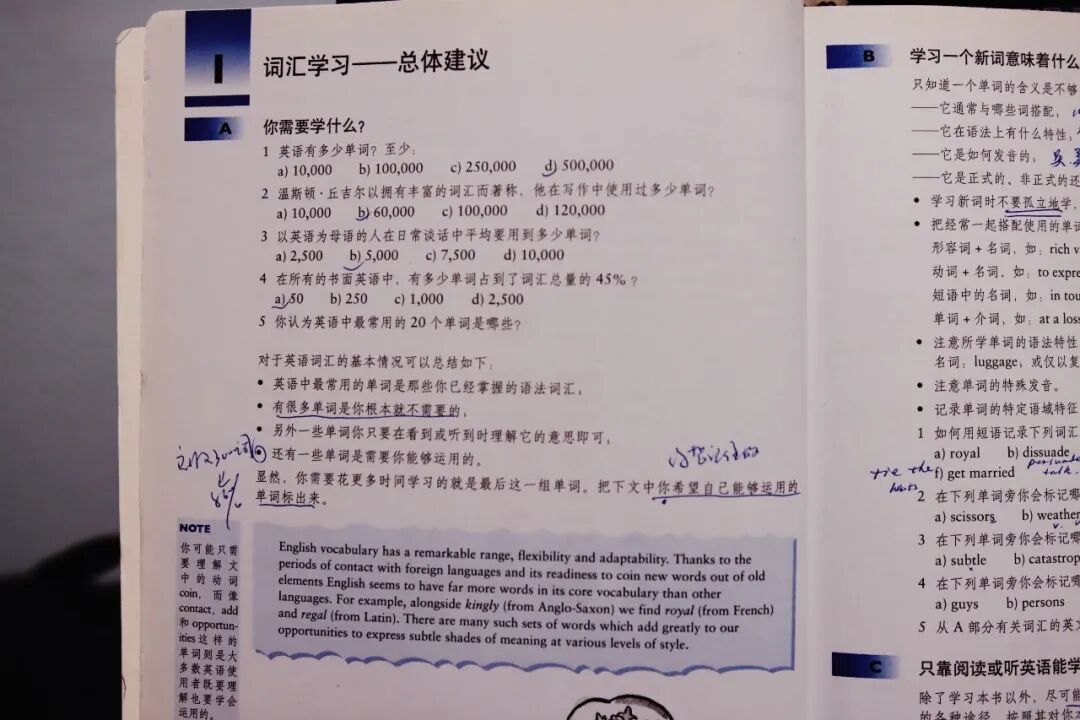 I
词汇学习——总体建议
A
你需要学什么？
1 英语有多少单词？至少：
a) 10,000 b) 100,000 c) 250,000 d) 500,000
2 温斯顿·丘吉尔以拥有丰富的词汇而著称，他在写作中使用过多少单词？
a) 10,000 b) 60,000 c) 100,000 d) 120,000
3 以英语为母语的人在日常谈话中平均要用到多少单词？
a) 2,500 b) 5,000 c) 7,500 d) 10,000
4 在所有的书面英语中，有多少单词占到了词汇总量的 45%？
a) 50 b) 250 c) 1,000 d) 2,500
5 你认为英语中最常用的 20 个单词是哪些？
对于英语词汇的基本情况可以总结如下：
• 英语中最常用的单词是那些你已经掌握的语法词汇，
• 有很多单词是你根本就不需要的，
• 另外一些单词你只要在看到或听到时理解它的意思即可，
• 还有一些单词是需要你能够运用的。
显然，你需要花更多时间学习的就是最后这一组单词。把下文中你希望自己能够运用的
单词标出来。
NOTE
你可能只需
要理解文
中的动词
coin，而像
contact, add
和 opportun-
ities 这样的
单词则是大
多数英语使
用者既要理
解也要学会
运用的。
English vocabulary has a remarkable range, flexibility and adaptability. Thanks to the
periods of contact with foreign languages and its readiness to coin new words out of old
elements English seems to have far more words in its core vocabulary than other
languages. For example, alongside kingly (from Anglo-Saxon) we find royal (from French)
and regal (from Latin). There are many such sets of words which add greatly to our
opportunities to express subtle shades of meaning at various levels of style.
B
学习一个新词意味着什么
只知道一个单词的含义是不够
——它通常与哪些词搭配，
——它在语法上有什么特性，
——它是如何发音的，
——它是正式的、非正式的还
• 学习新词时不要孤立地学，
• 把经常一起搭配使用的单词
形容词 + 名词，如：rich v
动词 + 名词，如：to expre
短语中的名词，如：in tou
单词 + 介词，如：at a loss
• 注意所学单词的语法特性
名词：luggage，或仅以复
• 注意单词的特殊发音。
• 记录单词的特定语域特征
1 如何用短语记录下列词汇
a) royal b) dissuade
tie the
persuade
f) get married
talk
2 在下列单词旁你会标记哪
a) scissors b) weather
3 在下列单词旁你会标记哪
a) subtle b) catastrop
4 在下列单词旁你会标记哪
a) guys b) persons
5 从 A 部分有关词汇的英文
C
只靠阅读或听英语能学
除了学习本书以外，尽可能